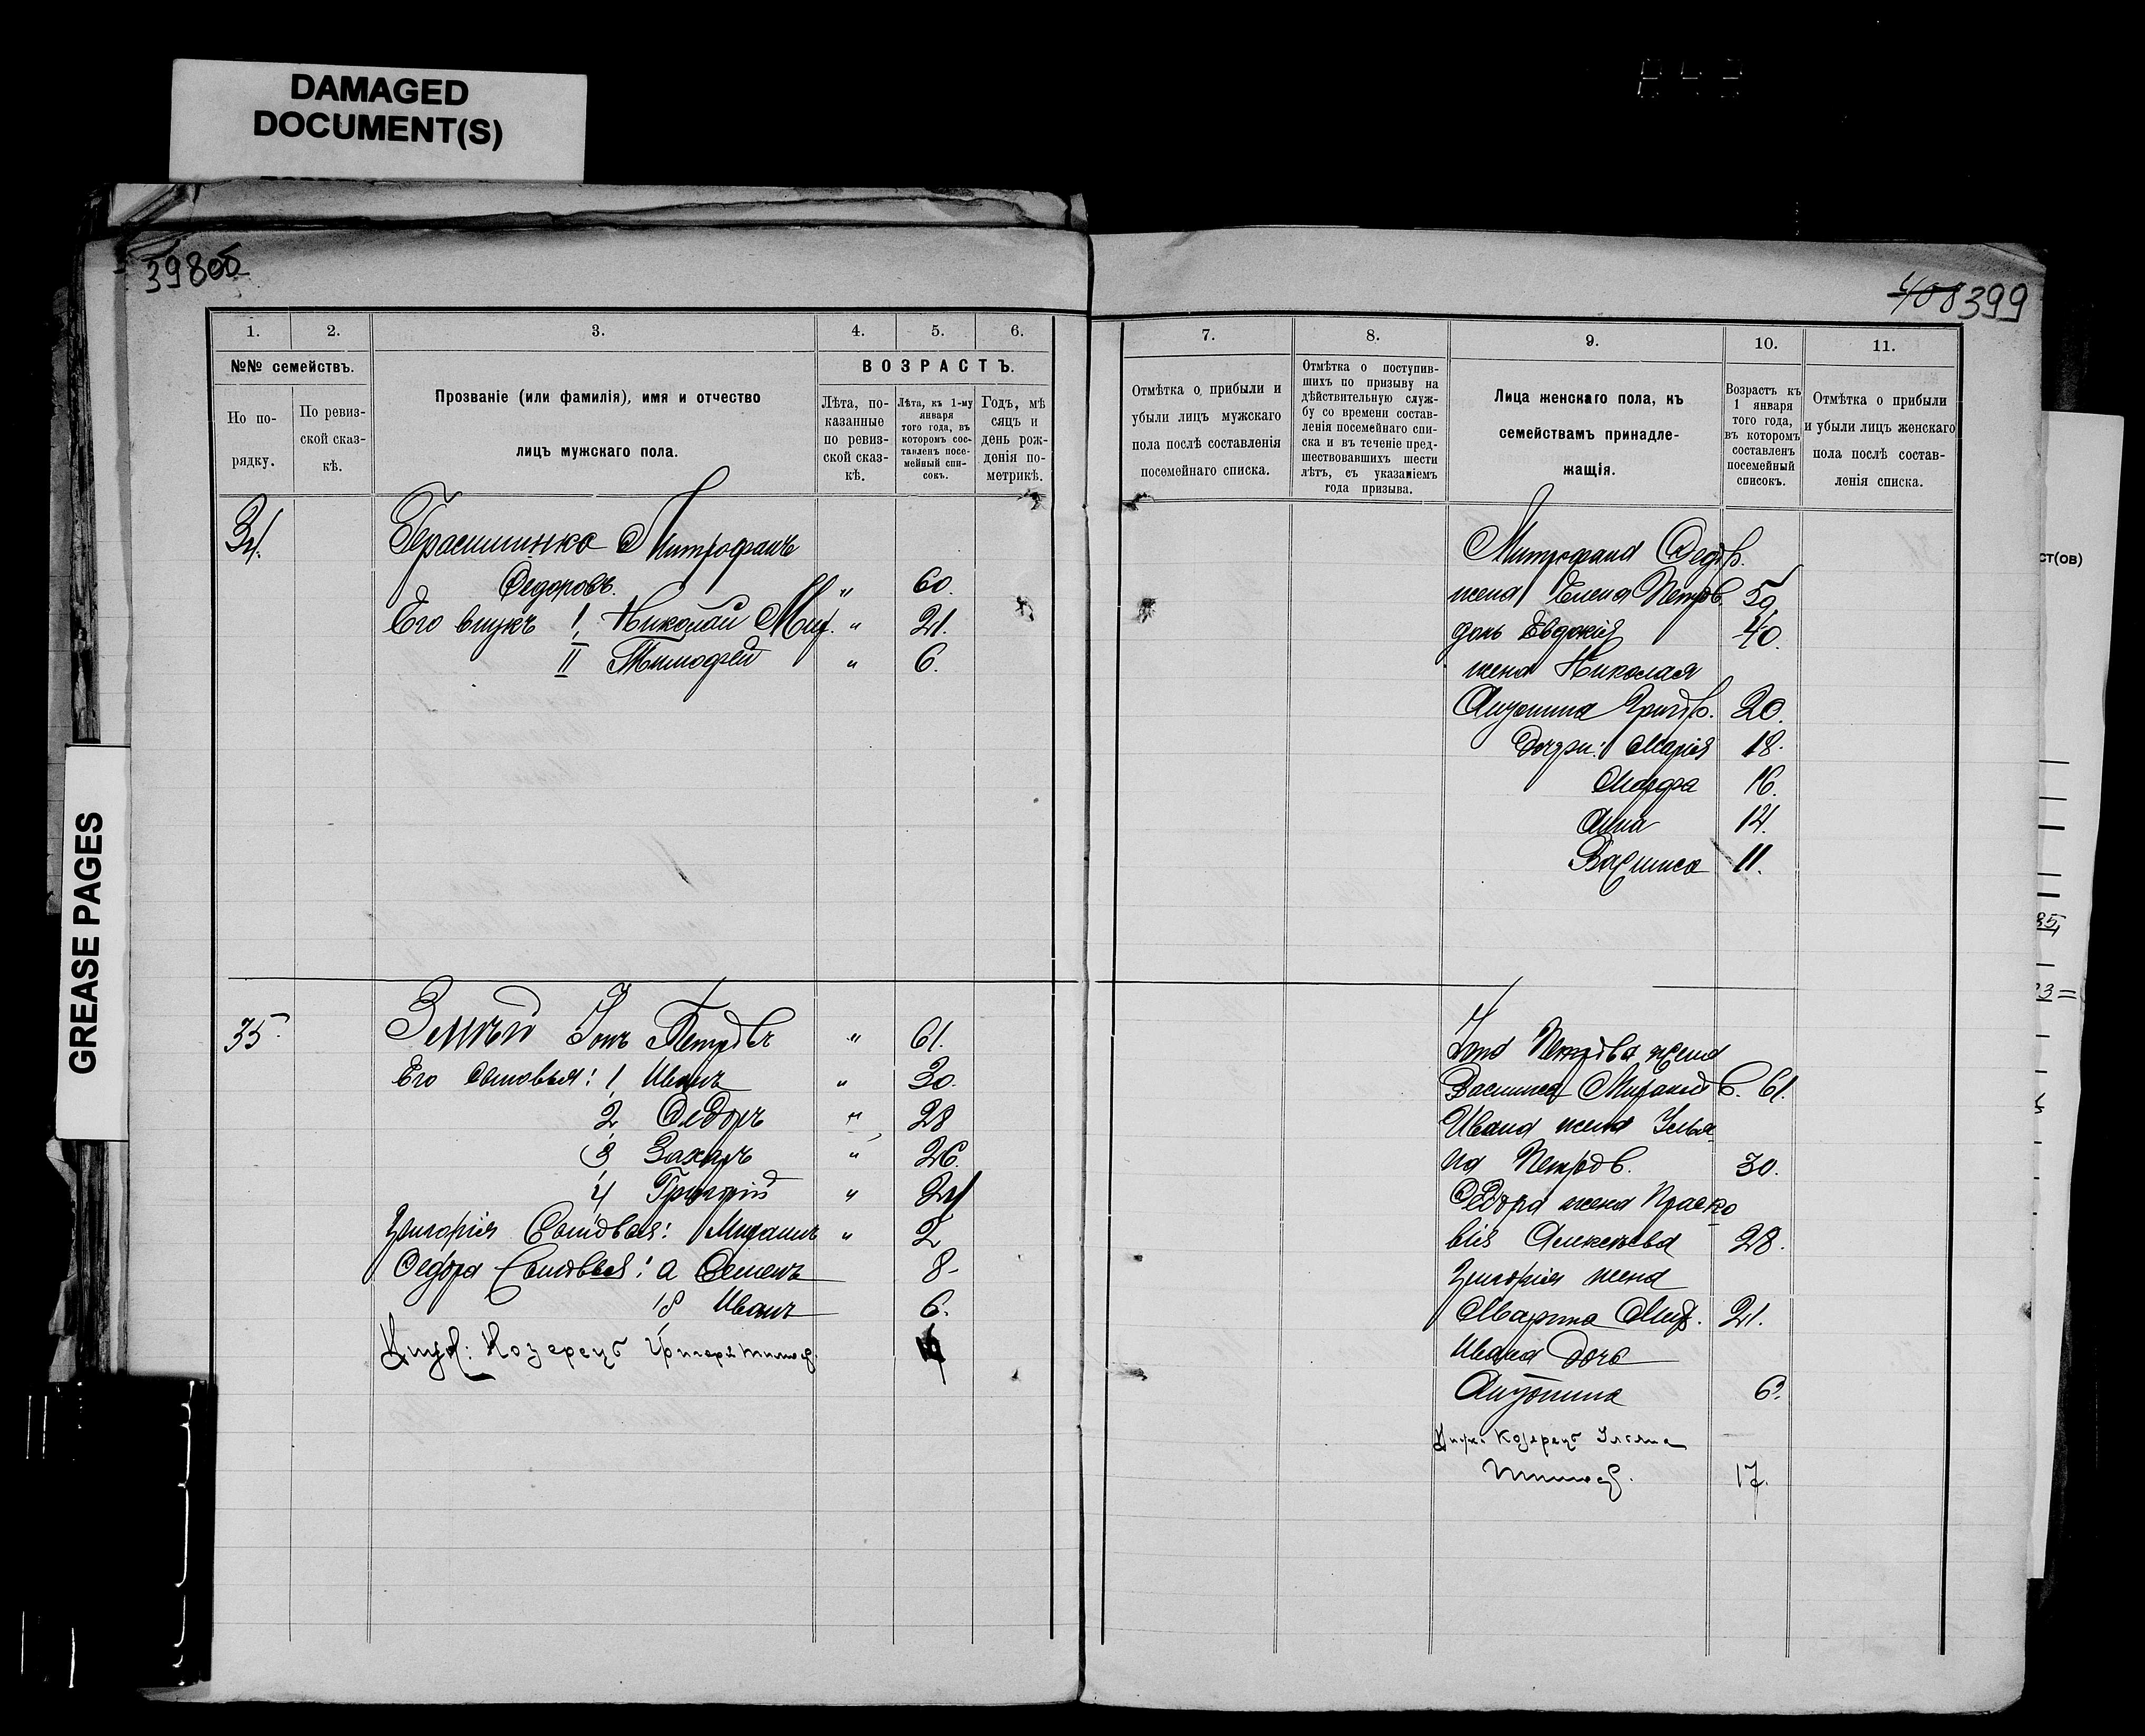 DAMAGED
DOCUMENT(S)
GREASE PAGES
398об
408 399
1.
2.
3.
4.
5.
6.
№№ семействъ.
ВОЗРАСТЪ.
По по-
рядку.
По ревиз-
ской сказ-
кѣ.
Прозваніе (или фамилія), имя и отчество
лицъ мужскаго пола.
Лѣта, по-
казанные
по ревиз-
ской сказ-
кѣ.
Лѣта, къ 1-му
января
того года, въ
которомъ сос-
тавленъ посе-
мейный спи-
сокъ.
Годъ, мѣ
сяцъ и
день рож-
денія по-
метрикѣ.
34.
Герасименко Митрофанъ
Федоровъ. " 60.
Его внукъ 1 Николай Мит. " 21.
II Тимофей " 6.
35.
Іонъ Петровъ " 61.
Его сыновья: 1 Иванъ " 30.
2 Федоръ " 28
3 Захаръ " 26.
4 Григорій " 24
Григорія сыновья: " 2
Федора сыновья: а Семенъ 8-
б Иванъ 6.
Козерецъ
7.
8.
9.
10.
11.
Отмѣтка о прибыли и
убыли лицъ мужскаго
пола послѣ составленія
посемейнаго списка.
Отмѣтка о поступив-
шихъ по призыву на
дѣйствительную служ-
бу со времени состав-
ленія посемейнаго спи-
ска и въ теченіе пред-
шествовавшихъ шести
лѣтъ, съ указаніемъ
года призыва.
Лица женскаго пола, къ
семействамъ принадле-
жащія.
Возрастъ къ
1 января
того года,
въ которомъ
составленъ
посемейный
списокъ.
Отмѣтка о прибыли
и убыли лицъ женскаго
пола послѣ состав-
ленія списка.
Митрофана Федор.
жена Елена Петров. 50
дочь Евдокія 40.
жена Николая
Антонина Григор. 20.
Дочери: Марія 18.
Марфа 16.
Анна 14.
Васлиса 11.
Іона Петрова жена
Василиса 61.
Ивана жена Улья
на Петров. 30.
Федора жена Праско
вія Алексѣева 28.
Григорія жена
Марина 21.
Ивана дочь
Антонина 6.
Козерецъ Ульяна
17.
ст(ов)